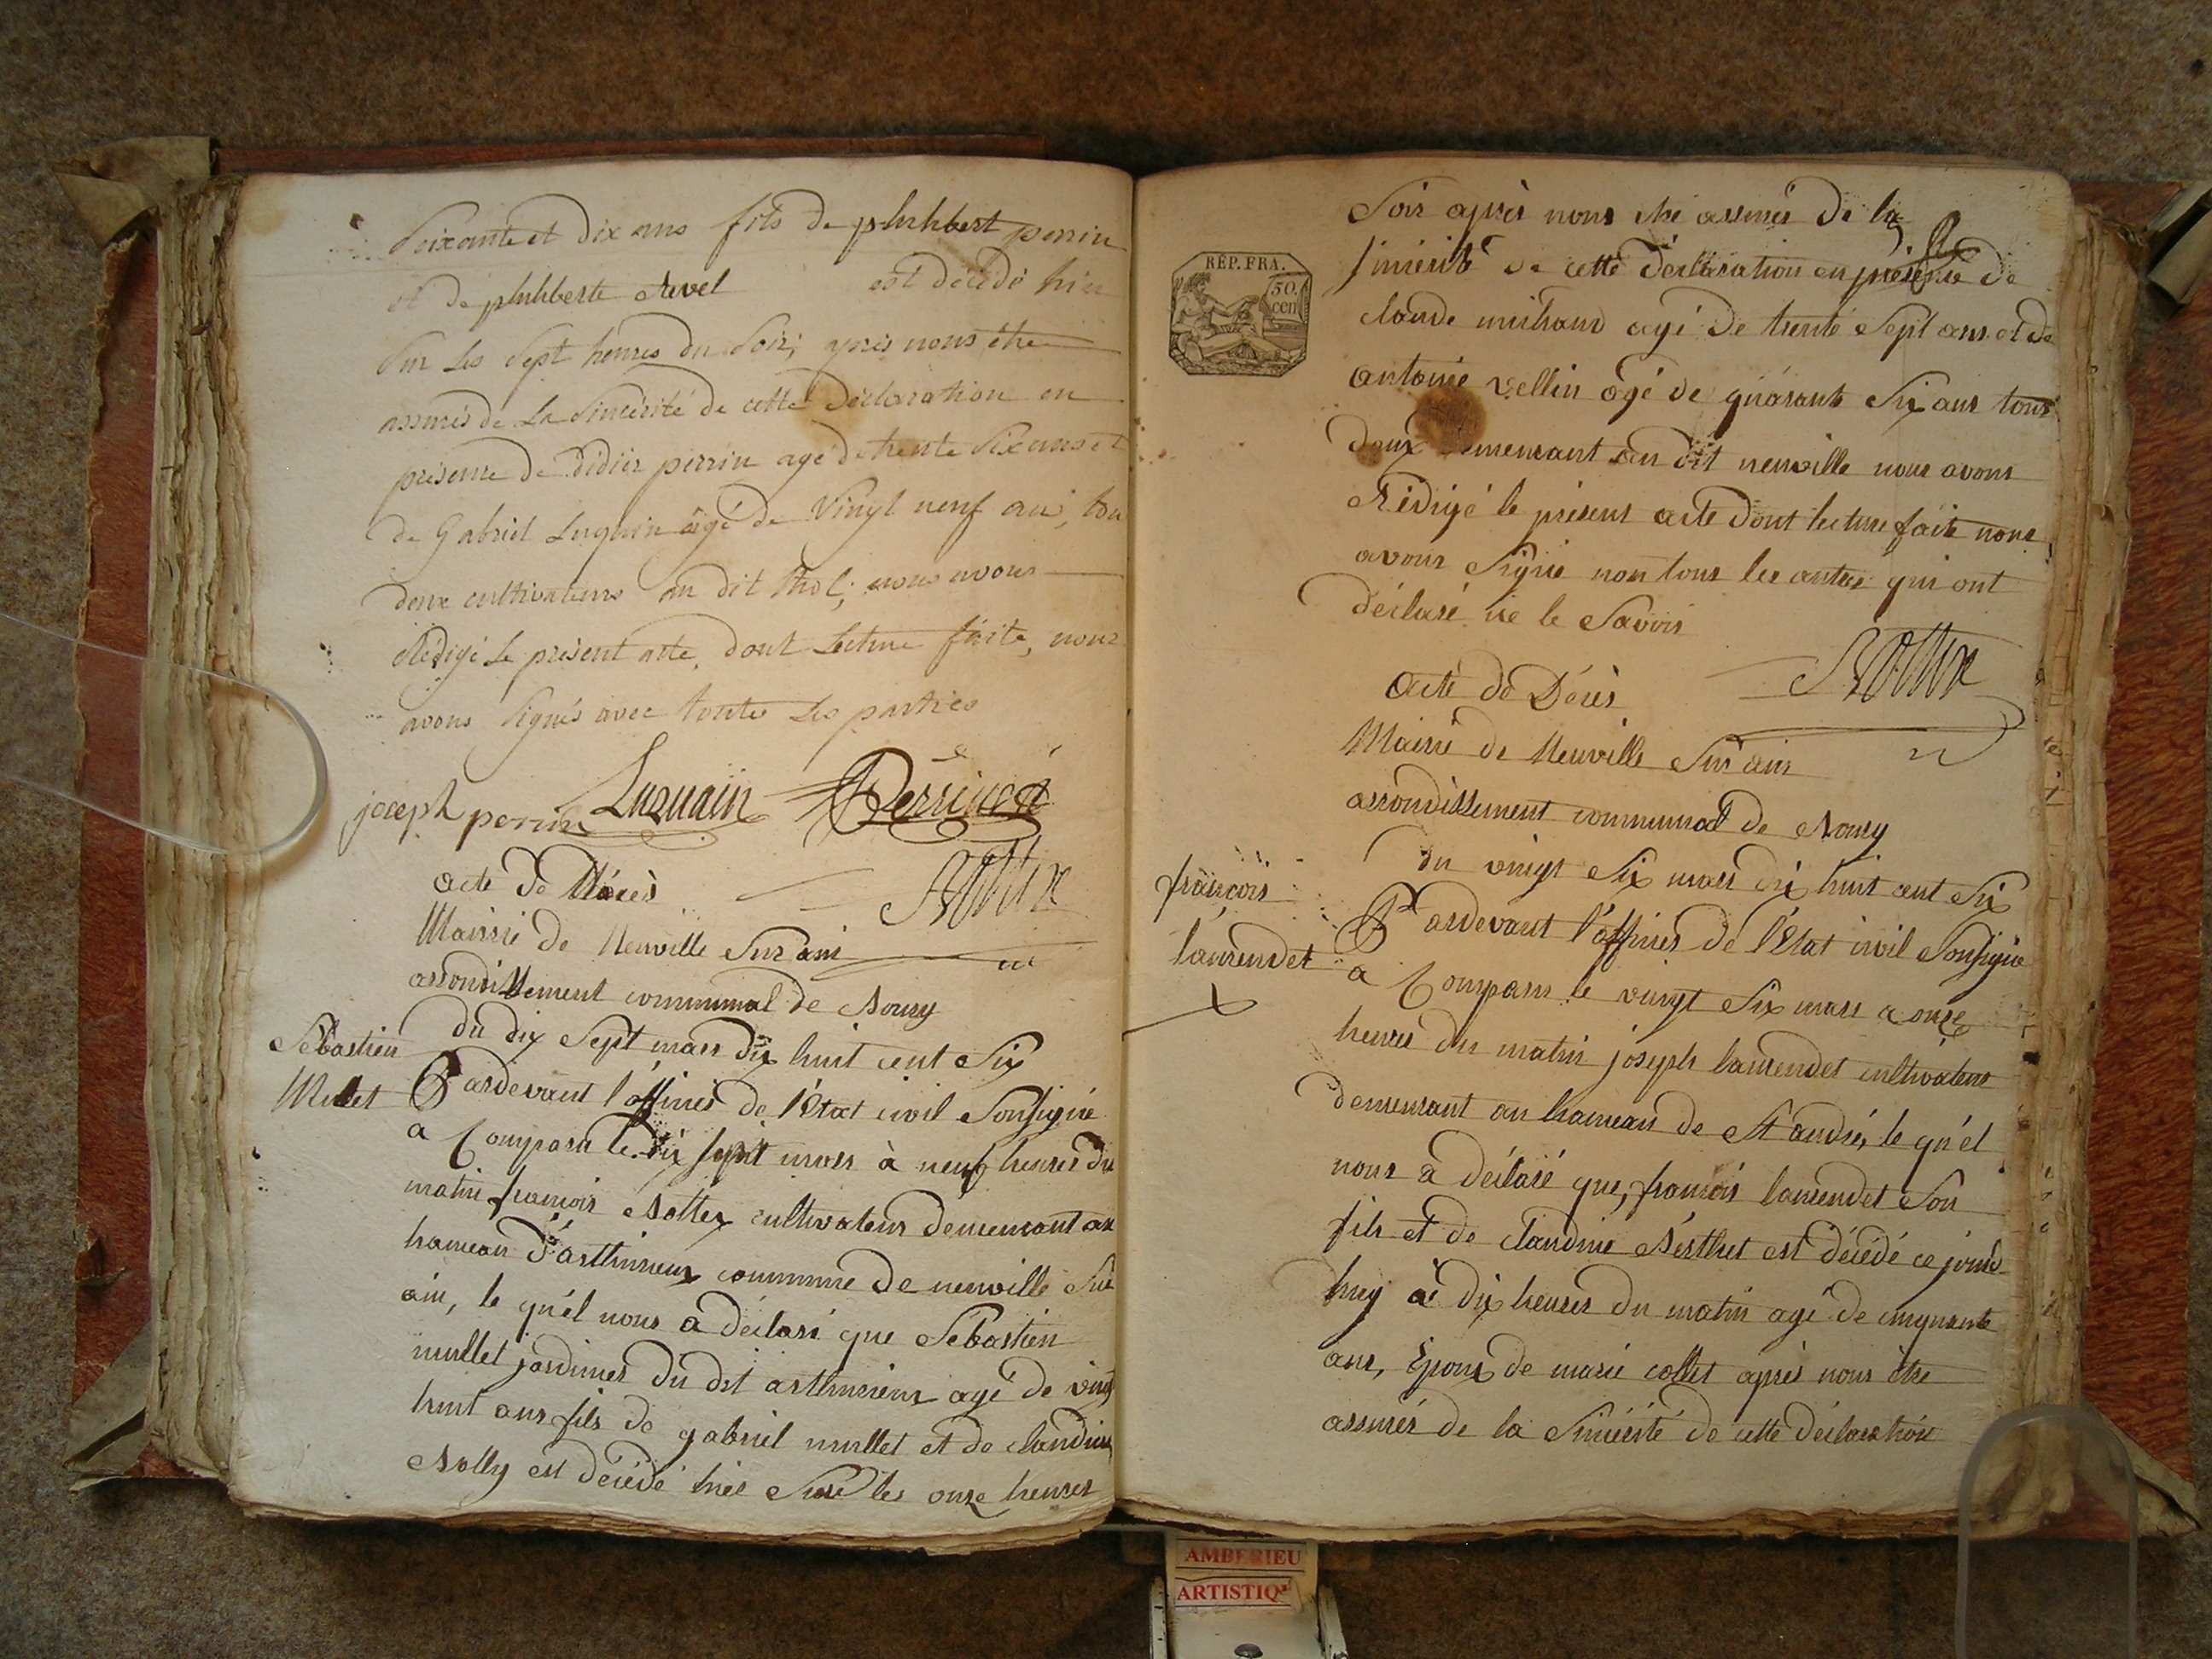 Soixante et dix ans fils de philibert perrin
et de philiberte Revel est décédé hier
Sur Les Sept heures du Soir; après nous être
assurés de La Sincérité de cette déclaration en
présence de Didier perrin agé de trente Six ans et
de Gabriel Luquin âgé de Vingt neuf ans, tou
deux cultivateurs au dit thol; nous avons
Rédigé Le présent acte, dont Lecture faite, nous
avons Signés avec toutes Les parties
joseph perrin Luquain Perrin
acte de Décès
Mairie de Neuville Sur ain
arrondissement communal de
du dix Sept mars dix huit cent Six
Sébastien
Mullet
Pardevant l'officier de l'Etat civil Soussigné
a Comparu le dix sept mars à neuf heures du
matin françois cultivateur demeurant au
hameau d'arthimieux commune de neuville Sur
ain, le qu'el nous a déclaré que Sébastien
mullet jardinier du dit arthimieux agé de vingt
huit ans fils de gabriel mullet et de claudine
est décédé hier Sur les onze heures
RÉP. FRA.
50
cen
Soir après nous être assurés de la
sincérité de cette déclaration en présence de
claude michaud agé de trente Sept ans et de
antoine vellin agé de quarante Six ans tous
deux demeurant au dit neuville nous avons
Rédigé le présent acte dont lecture faite nous
avons Signé non tous les autres qui ont
déclaré ne le Savoir
acte de Décès
Mairie de Neuville Sur ain
arrondissement communal de
du vingt Six mars dix huit cent Six
françois
laurendet
Pardevant l'officier de l'Etat civil Soussigné
a Comparu le vingt Six mars a onze
heures du matin joseph laurendet cultivateur
demeurant au hameau de St andré, le qu'el
nous a déclaré que, françois laurendet Son
fils et de claudine est décédé ce jourd
huy à dix heures du matin agé de cinquante
ans, Epoux de marie collet après nous être
assurés de la Sincérité de cette déclaration
AMBERIEU
ARTISTIQ